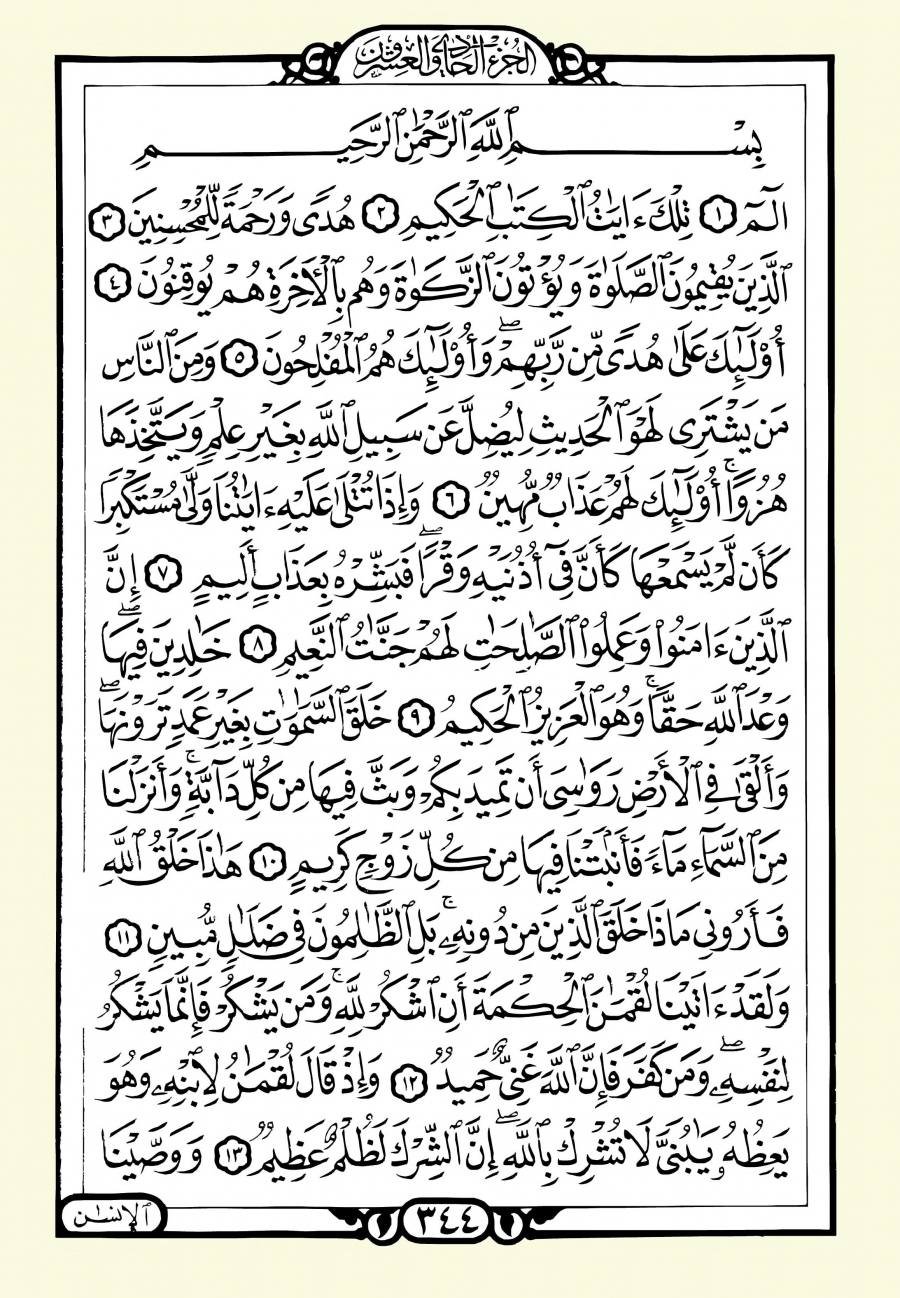 الجزء الحادي والعشرون
بِسْمِ ٱللَّهِ ٱلرَّحْمَٰنِ ٱلرَّحِيمِ
الٓمٓ ١ تِلْكَ ءَايَٰتُ ٱلْكِتَٰبِ ٱلْحَكِيمِ ٢ هُدًى وَرَحْمَةً لِّلْمُحْسِنِينَ ٣
ٱلَّذِينَ يُقِيمُونَ ٱلصَّلَوٰةَ وَيُؤْتُونَ ٱلزَّكَوٰةَ وَهُم بِٱلْأَخِرَةِ هُمْ يُوقِنُونَ ٤
أُو۟لَٰٓئِكَ عَلَىٰ هُدًى مِّن رَّبِّهِمْ ۖ وَأُو۟لَٰٓئِكَ هُمُ ٱلْمُفْلِحُونَ ٥ وَمِنَ ٱلنَّاسِ
مَن يَشْتَرِى لَهْوَ ٱلْحَدِيثِ لِيُضِلَّ عَن سَبِيلِ ٱللَّهِ بِغَيْرِ عِلْمٍ وَيَتَّخِذَهَا
هُزُوًا ۚ أُو۟لَٰٓئِكَ لَهُمْ عَذَابٌ مُّهِينٌ ٦ وَإِذَا تُتْلَىٰ عَلَيْهِ ءَايَٰتُنَا وَلَّىٰ مُسْتَكْبِرًا
كَأَن لَّمْ يَسْمَعْهَا كَأَنَّ فِىٓ أُذُنَيْهِ وَقْرًا ۖ فَبَشِّرْهُ بِعَذَابٍ أَلِيمٍ ٧ إِنَّ
ٱلَّذِينَ ءَامَنُوا۟ وَعَمِلُوا۟ ٱلصَّٰلِحَٰتِ لَهُمْ جَنَّٰتُ ٱلنَّعِيمِ ٨ خَٰلِدِينَ فِيهَا ۖ
وَعْدَ ٱللَّهِ حَقًّا ۚ وَهُوَ ٱلْعَزِيزُ ٱلْحَكِيمُ ٩ خَلَقَ ٱلسَّمَٰوَٰتِ بِغَيْرِ عَمَدٍ تَرَوْنَهَا ۖ
وَأَلْقَىٰ فِى ٱلْأَرْضِ رَوَٰسِىَ أَن تَمِيدَ بِكُمْ وَبَثَّ فِيهَا مِن كُلِّ دَآبَّةٍ ۚ وَأَنزَلْنَا
مِنَ ٱلسَّمَآءِ مَآءً فَأَنۢبَتْنَا فِيهَا مِن كُلِّ زَوْجٍ كَرِيمٍ ١٠ هَٰذَا خَلْقُ ٱللَّهِ
فَأَرُونِى مَاذَا خَلَقَ ٱلَّذِينَ مِن دُونِهِۦ ۚ بَلِ ٱلظَّٰلِمُونَ فِى ضَلَٰلٍ مُّبِينٍ ١١
وَلَقَدْ ءَاتَيْنَا لُقْمَٰنَ ٱلْحِكْمَةَ أَنِ ٱشْكُرْ لِلَّهِ ۚ وَمَن يَشْكُرْ فَإِنَّمَا يَشْكُرُ
لِنَفْسِهِۦ ۖ وَمَن كَفَرَ فَإِنَّ ٱللَّهَ غَنِىٌّ حَمِيدٌ ١٢ وَإِذْ قَالَ لُقْمَٰنُ لِٱبْنِهِۦ وَهُوَ
يَعِظُهُۥ يَٰبُنَىَّ لَا تُشْرِكْ بِٱللَّهِ ۖ إِنَّ ٱلشِّرْكَ لَظُلْمٌ عَظِيمٌ ١٣ وَوَصَّيْنَا
ٱلْإِنسَٰنَ
٣٤٤